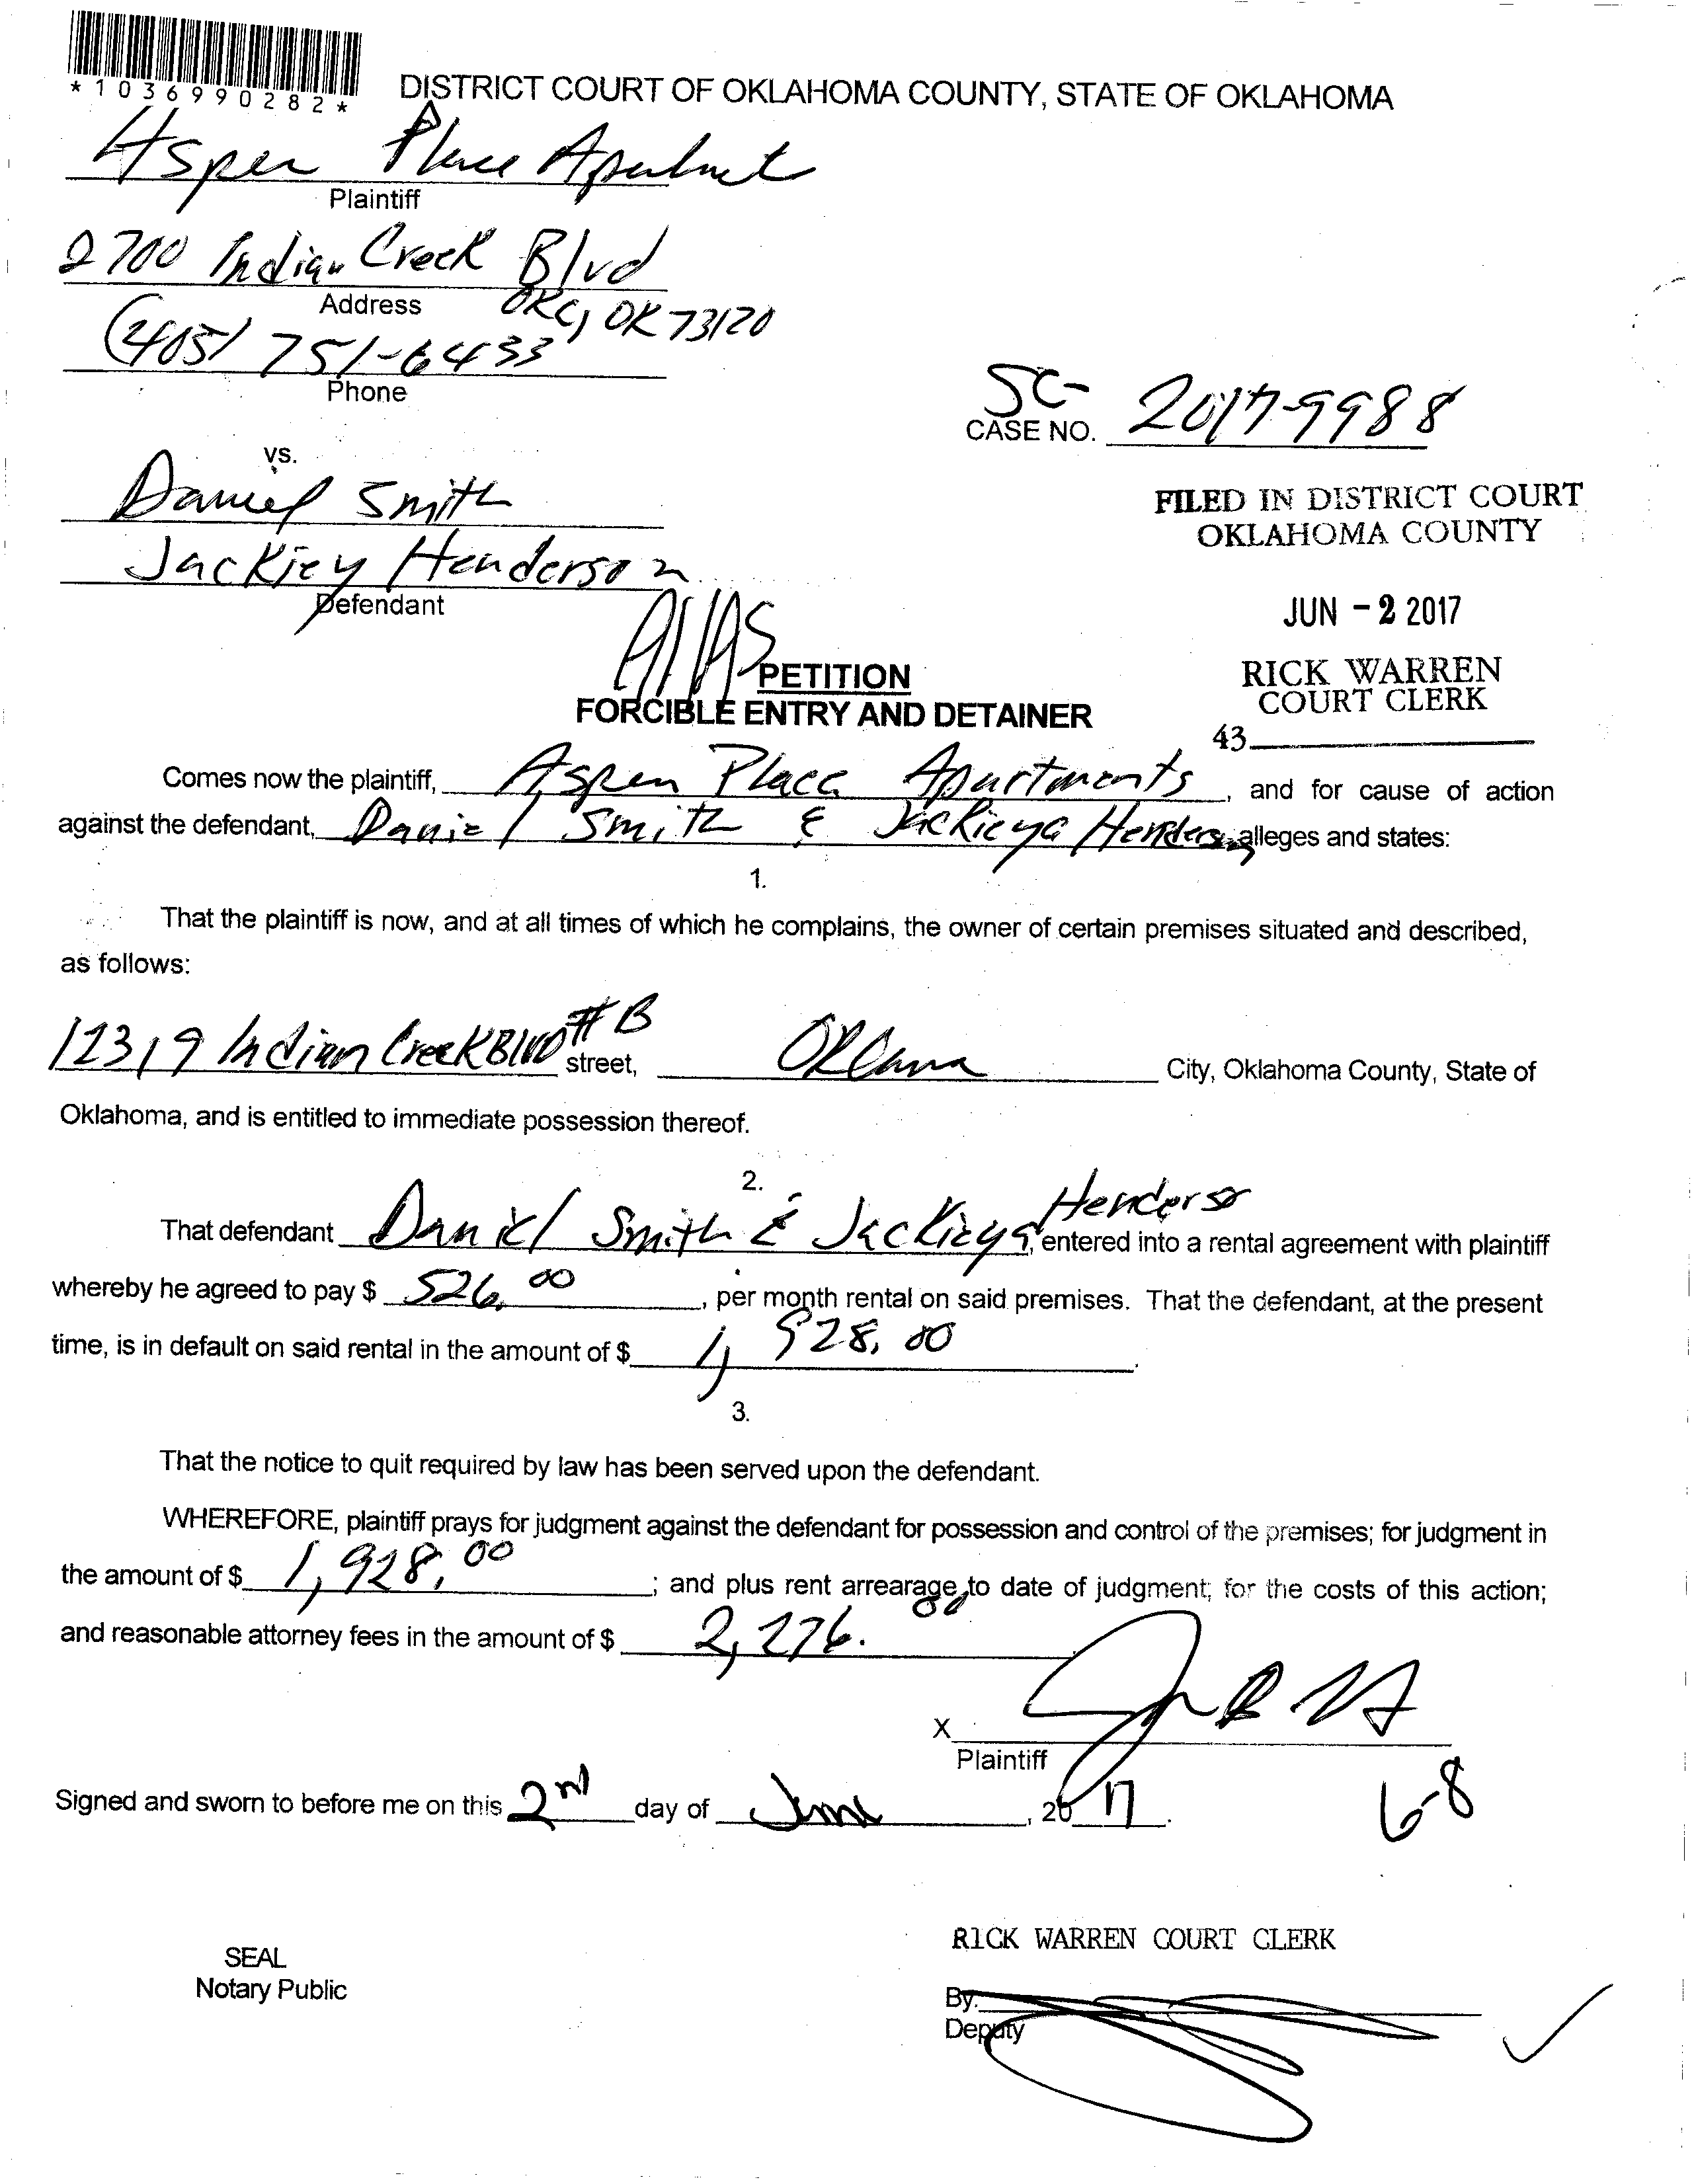 *1036990282*
DISTRICT COURT OF OKLAHOMA COUNTY, STATE OF OKLAHOMA
Aspen Place Apartment
Plaintiff
2700 Indian Creek Blvd
Address OKC, OK 73120
(405) 751-6433
Phone
SC-
CASE NO. 2017-9988
vs.
Daniel Smith
FILED IN DISTRICT COURT
OKLAHOMA COUNTY
Jackiey Henderson
Defendant
JUN - 2 2017
AliAS
RICK WARREN
COURT CLERK
PETITION
FORCIBLE ENTRY AND DETAINER
43
Comes now the plaintiff, Aspen Place Apartments, and for cause of action
against the defendant, Daniel Smith & Jackieya Henderson alleges and states:
1.
That the plaintiff is now, and at all times of which he complains, the owner of certain premises situated and described,
as follows:
12319 Indian Creek BlVD # B street, City, Oklahoma County, State of
Oklahoma, and is entitled to immediate possession thereof.
2.
Henderso
That defendant Daniel Smith & Jackieya, entered into a rental agreement with plaintiff
whereby he agreed to pay $ 526.00, per month rental on said premises. That the defendant, at the present
time, is in default on said rental in the amount of $ 1,928.00.
3.
That the notice to quit required by law has been served upon the defendant.
WHEREFORE, plaintiff prays for judgment against the defendant for possession and control of the premises; for judgment in
the amount of $ 1,928.00; and plus rent arrearage to date of judgment; for the costs of this action;
and reasonable attorney fees in the amount of $ 2,276.00
X
Plaintiff
6-8
Signed and sworn to before me on this 2nd day of June, 20 17.
RICK WARREN COURT CLERK
SEAL
Notary Public
By:
Deputy